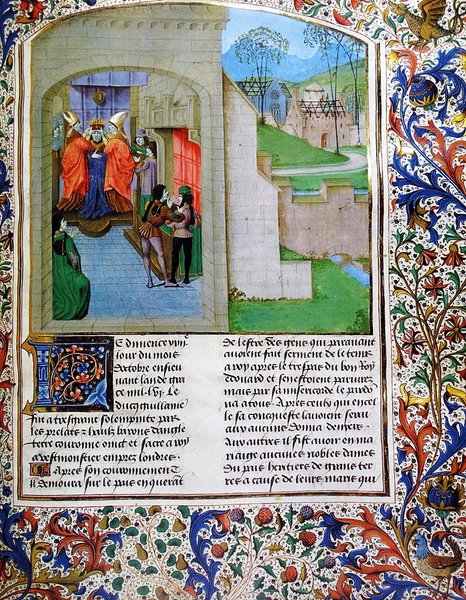 E dimence viije
Jour du mois
Doctobre ensieu
uant lan de gra
ce mil lxvj. Le
duc guillaume
fut a tresgrant solempnite par
les prelatz & haultz barons dangle
terre couronne oinct et sacre a roy
a westmonstier emprez londres.
Apres son couronnement
Il demoura sur le pais enquerāt
de lestre des gens qui parauant
auoient fait serment de le tenir
a roy aprez le trespas du bon Roy
Edouard et sen estoient pariurez
mais par sa misericorde le pardō
na a tous. Aprez ceulx qui en icel
le sa conqueste lauoient serui
aucuns donna deniers.
Aux autres il fist auoir en ma
riage aucunes nobles dames
du pais heritieres de grans ter
res a cause de leurs maris qui